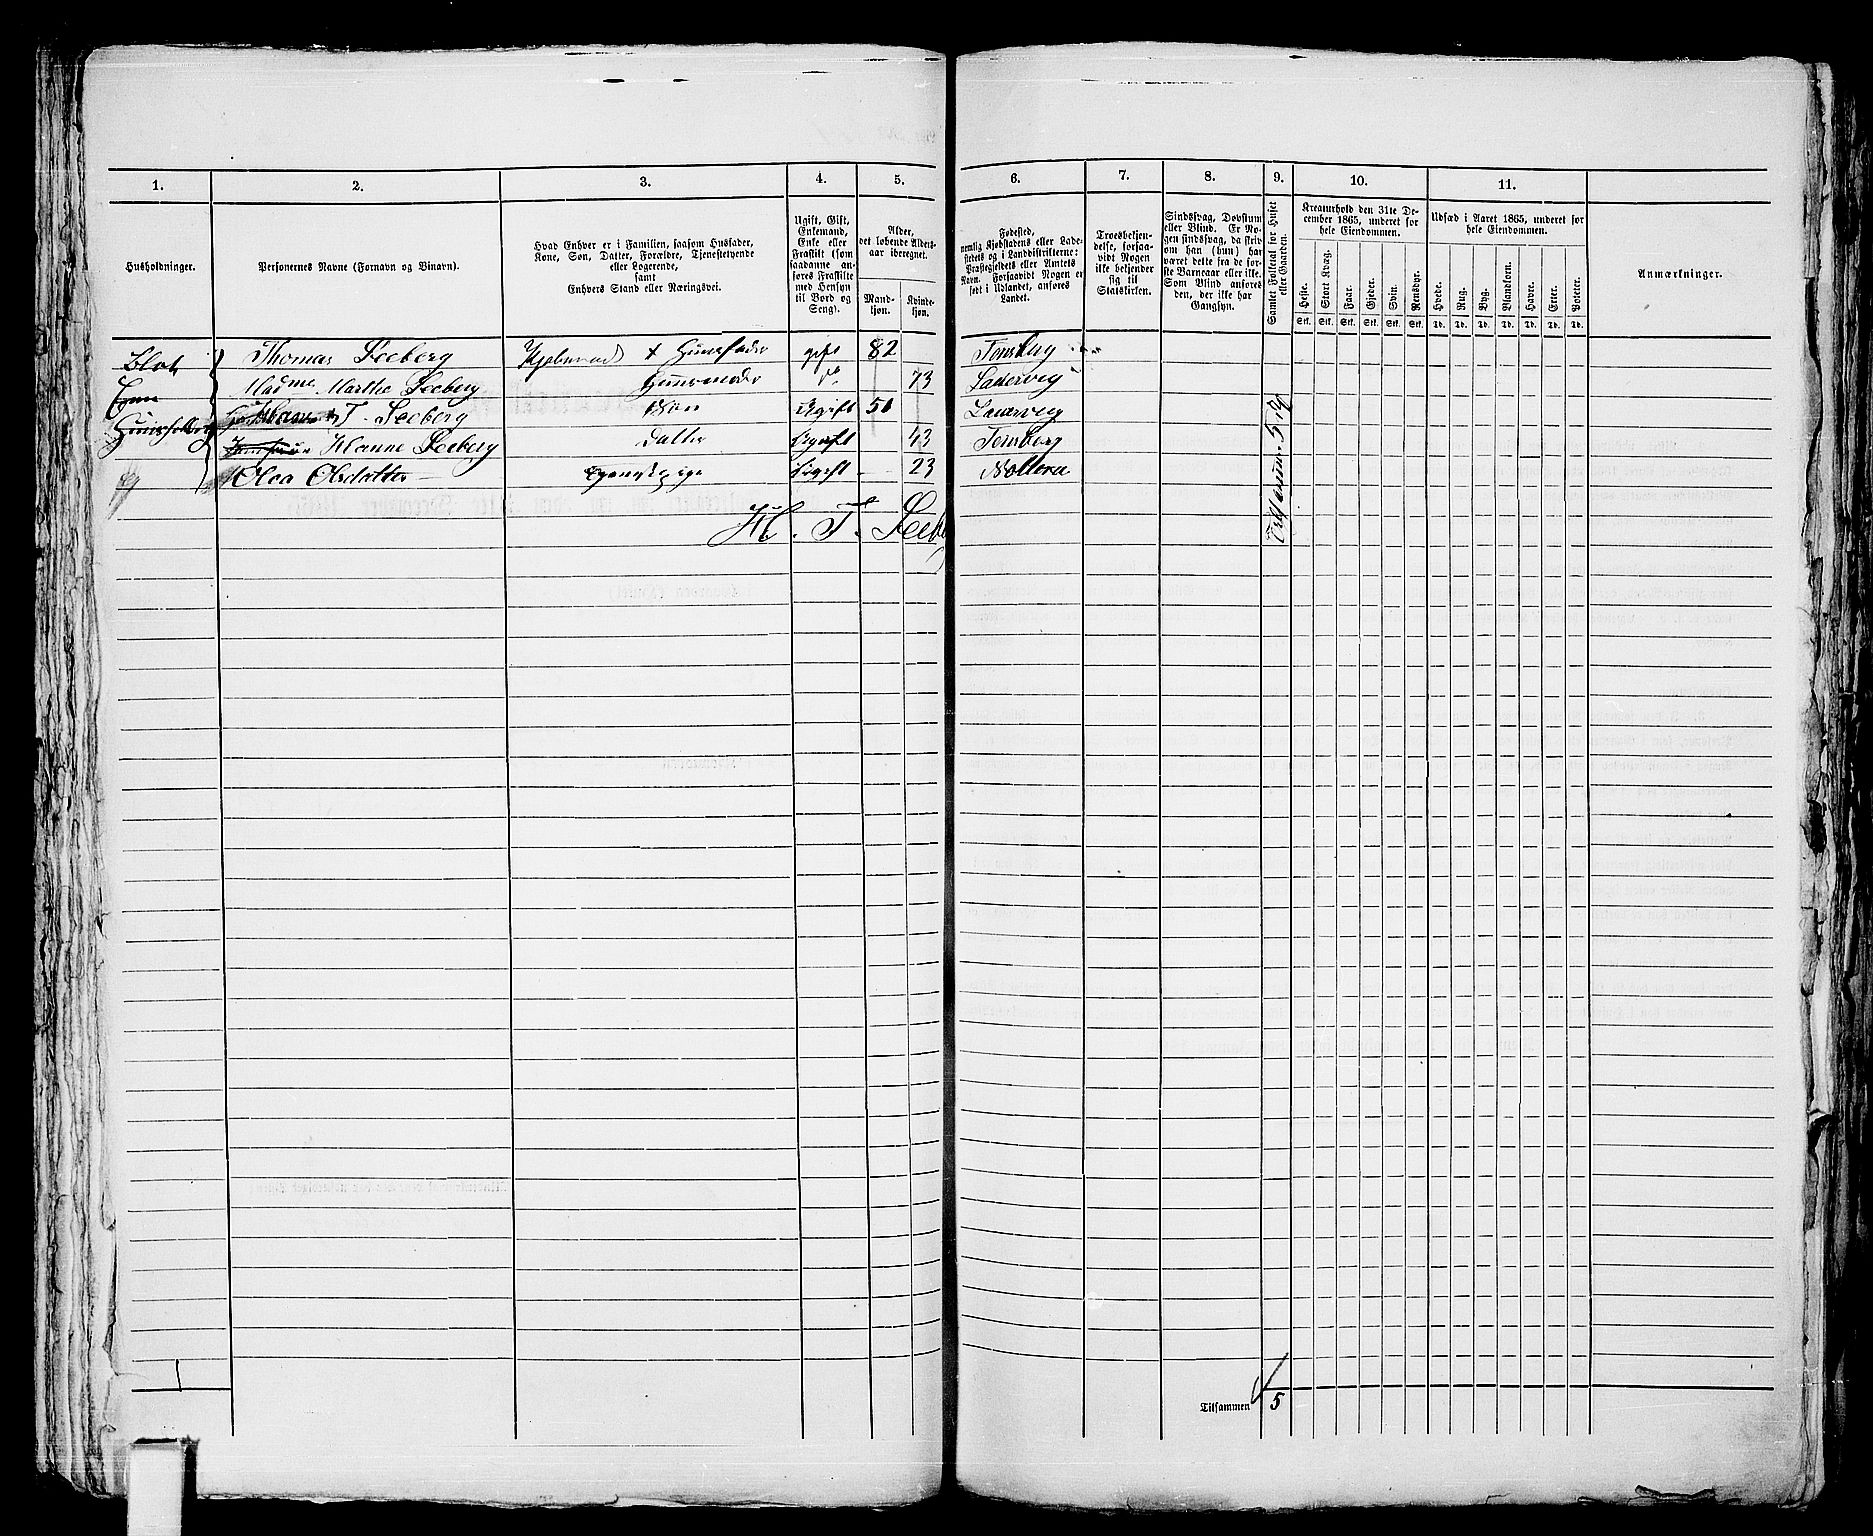 1. 2. 3. 4. 5. 6. 7. 8. 9. 10. 11.
Husholdninger.
Personernes Navne (Fornavn og Binavn).
Hvad Enhver er i Familien, saasom Husfader,
Kone, Søn, Datter, Forældre, Tjenestetyende
eller Logerende,
samt
Enhvers Stand eller Næringsvei.
Ugift, Gift,
Enkemand,
Enke eller
Fraskilt (som
saadanne an-
føres Fraskilte
med Hensyn
til Bord og
Seng).
Alder,
det løbende Alders-
aar iberegnet.
Mand-
kjøn.
Kvinde-
kjøn.
Fødested,
nemlig Kjøbstadens eller Lade-
stedets og i Landdistrikterne:
Præstegjeldets eller Amtets
Navn. Forsaavidt Nogen er
født i Udlandet, anføres
Landet.
Troesbekjen-
delse, forsaa-
vidt Nogen
ikke bekjender
sig til
Statskirken.
Sindssvag, Døvstum
eller Blind. Er No-
gen sindssvag, da skriv
om han (hun) har
været dette fra de før-
ste Barneaar eller ikke.
Som Blind anføres
den, der ikke har
Gangsyn.
Samlet Folketal for Huset
eller Gaarden.
Kreaturhold den 31te De-
cember 1865, underet for
hele Eiendommen.
Heste. Stort Kvæg. Faar. Gjeder. Svin. Rensdyr.
Stk. Stk. Stk. Stk. Stk. Stk.
Udsæd i Aaret 1865, underet for
hele Eiendommen.
Hvede. Rug. Byg. Blandkorn. Havre. Erter. Poteter.
Td. Td. Td. Td. Td. Td. Td.
Anmærkninger.
Blot Thomas Seeberg + Huusfader gift 82 Tønsberg
Een Madme Marthe Seeberg Huusmoder do 73 Laurvig
T. Seeberg Søn Ugift 51 Laurvig
Hanne Seeberg Datter Ugift 43 Tønsberg
Olea Olsdatter Ugift 23 Nøtterø
H. T. Seeberg
Tilsammen 5
1
Tilsammen 5